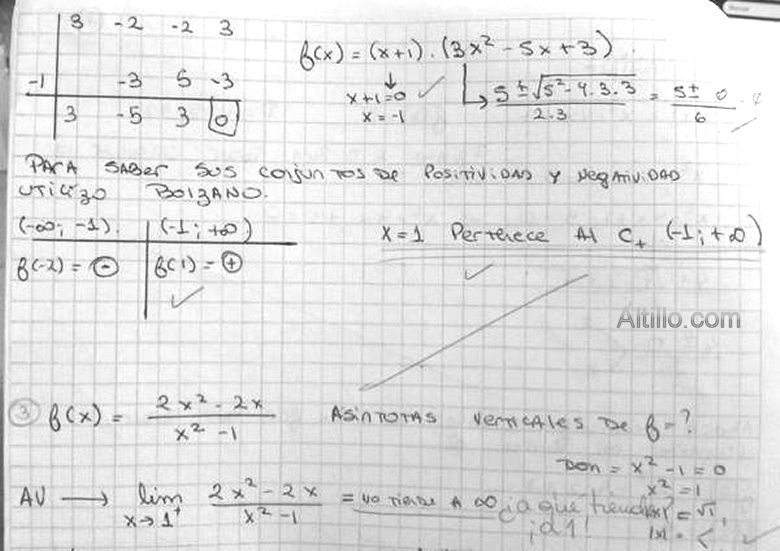 3 -2 -2 3
-1 -3 5 -3
3 -5 3 0
f(x) = (x+1) . (3x² - 5x + 3)
x+1=0
x = -1
5 ± √5² - 4.3.3 / 2.3 = 5 ± / 6
PARA SABER SUS CONJUNTOS DE POSITIVIDAD Y NEGATIVIDAD
UTILIZO BOLZANO.
(-∞; -1) (-1; +∞)
f(-2) = ⊖ f(1) = ⊕
x=1 Pertenece Al C₊ (-1; +∞)
Altillo.com
③ f(x) = 2x² - 2x / x² - 1 ASINTOTAS VERTICALES DE f = ?
Dom = x² - 1 = 0
x² = 1
AV → lim x→1⁺ 2x² - 2x / x² - 1 = no tiende A ∞ ¿a qué tiende?
|x| = √1
¡a 1!
|x| =